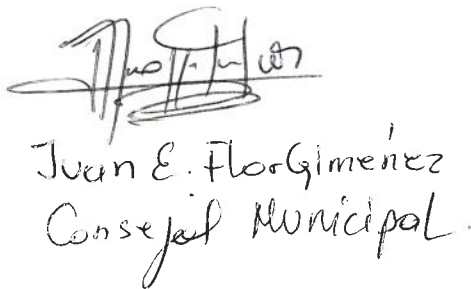 Juan E. Flor Gimeńez
Consejal Municipal